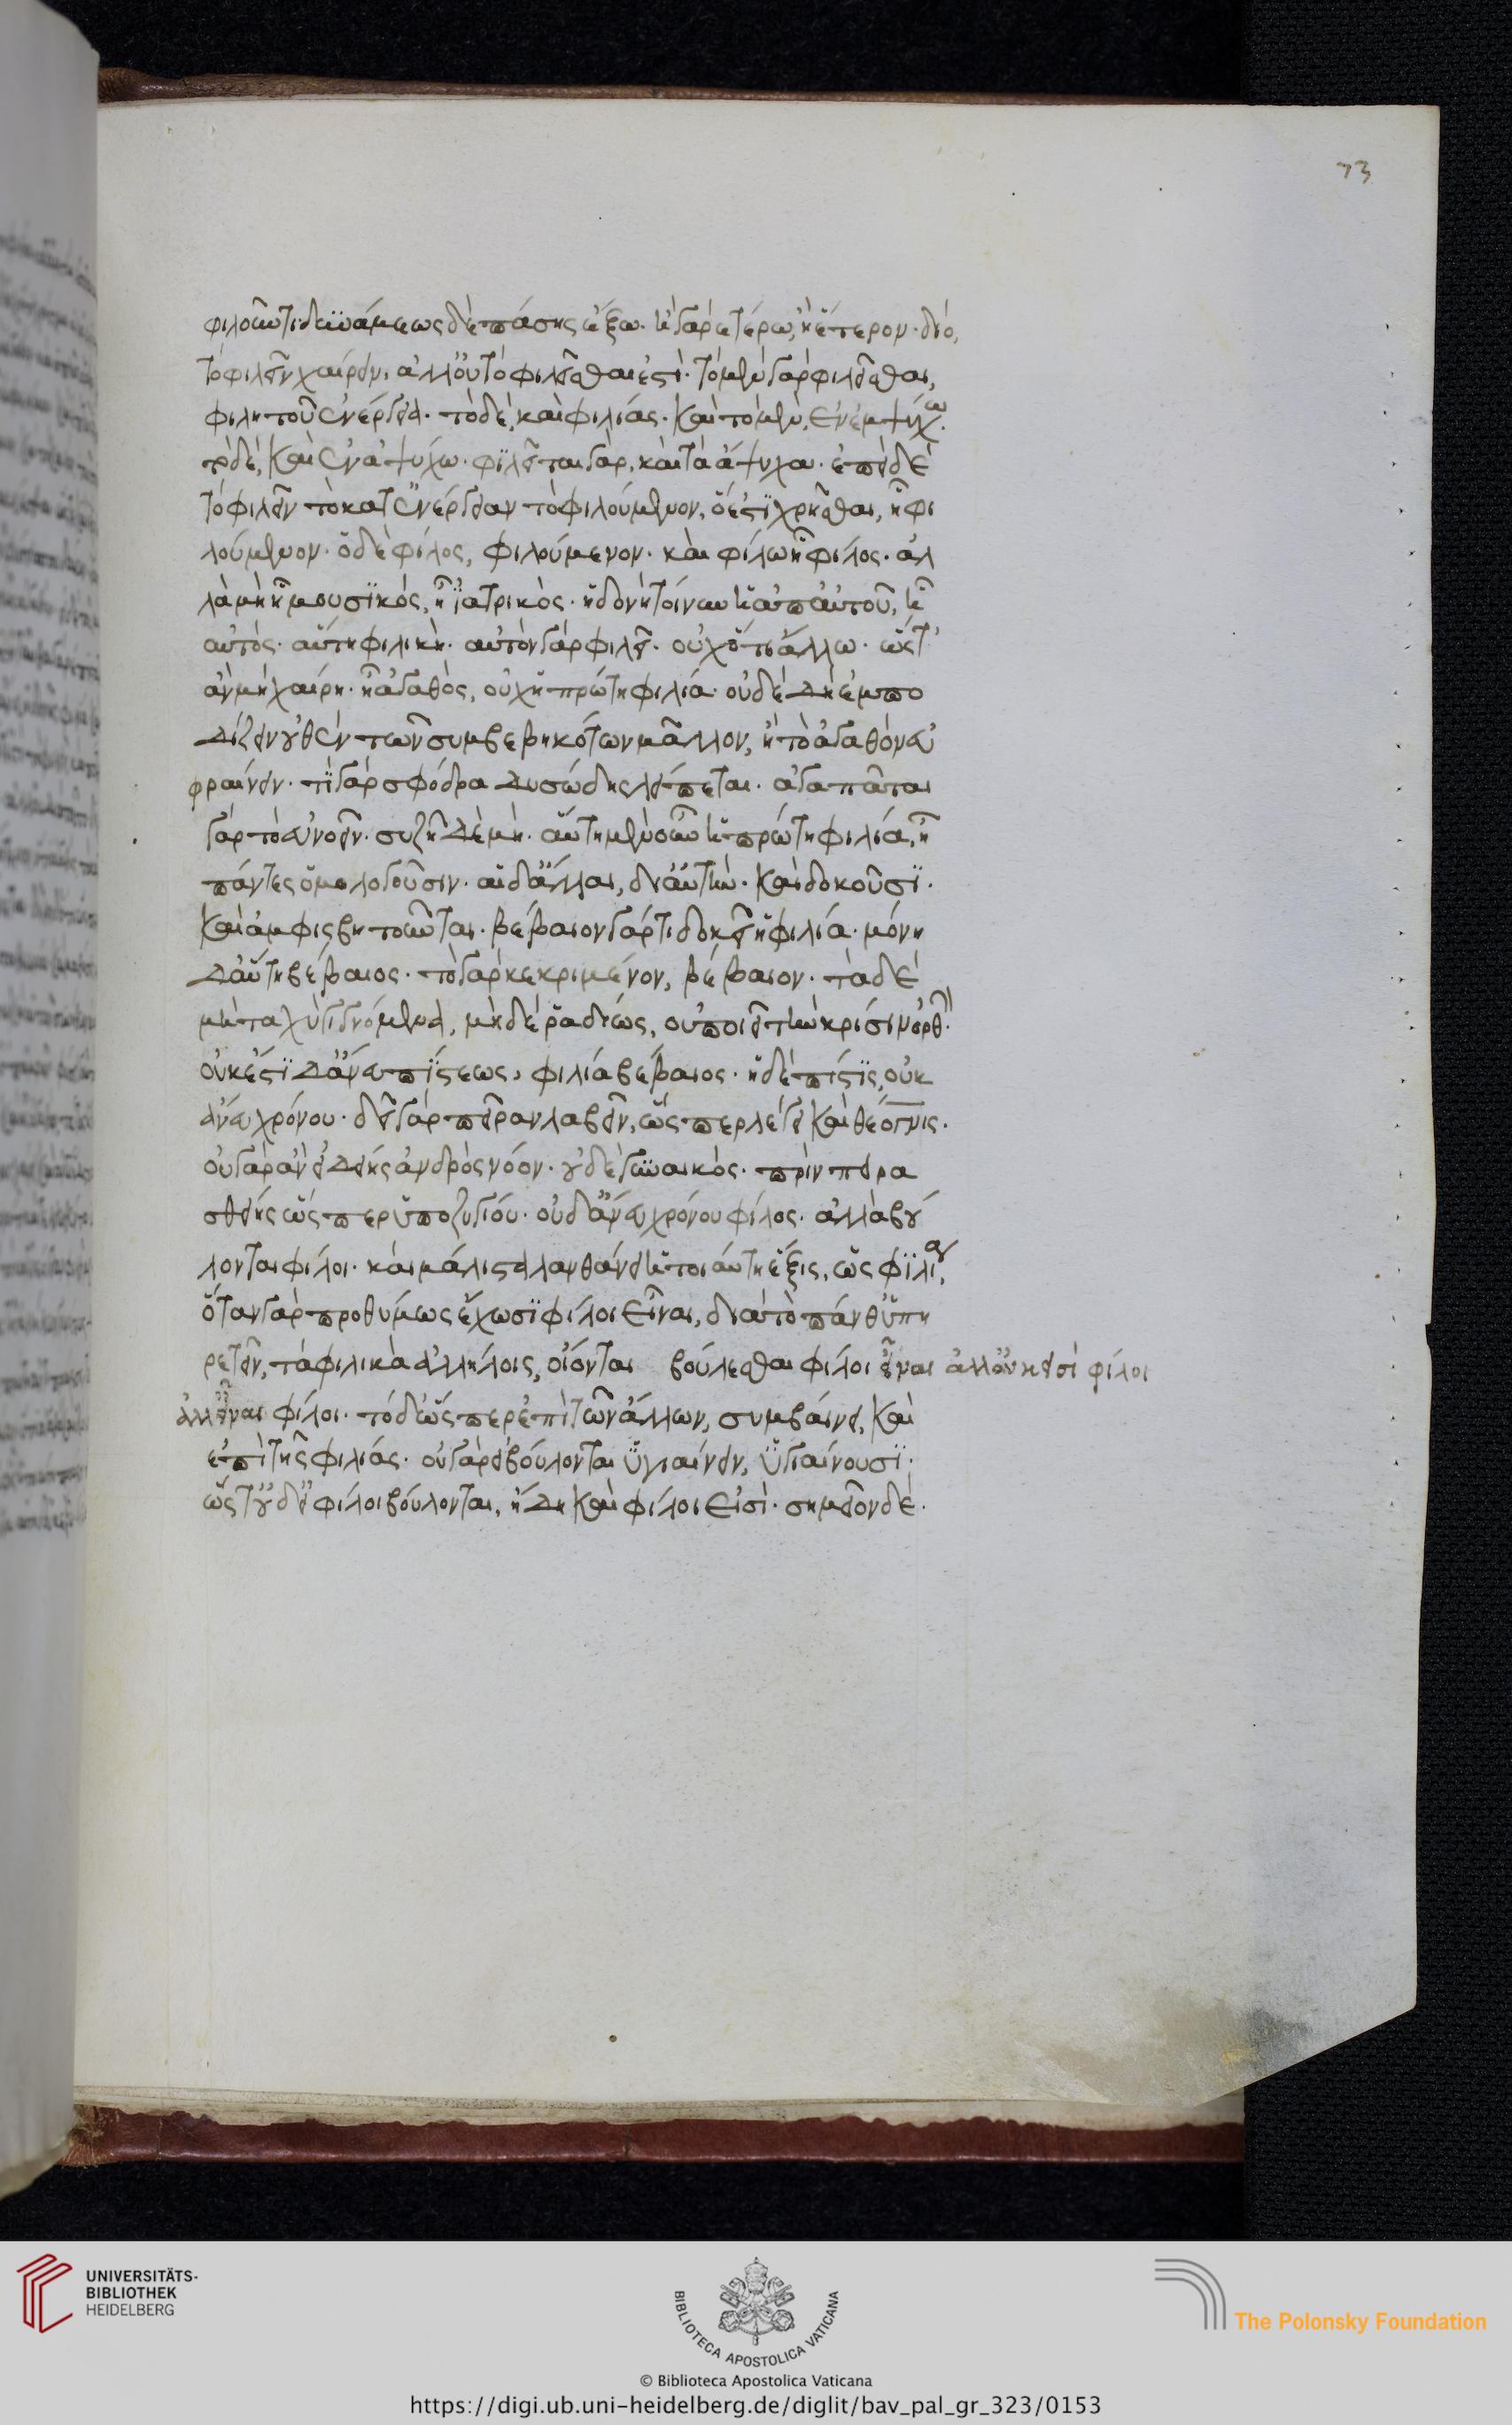 φιλοῦντι· δυνάμεως δὲ πάσης ἔξω· ἢ γὰρ ἑτέρω, ἢ ἕτερον· διὸ,
τὸ φιλεῖν χαίρειν, ἀλλ' οὐ τὸ φιλεῖσθαι ἐστὶ· τὸ μὲν γὰρ φιλεῖσθαι,
φιλητοῦ ἐνέργεια· τὸ δὲ, καὶ φιλίας· καὶ τὸ μὲν, ἐν ἐμψύχω·
τὸ δὲ, καὶ ἐν ἀψύχω· φιλεῖται γὰρ, καὶ τὰ ἄψυχα· ἐπεὶ δὲ
τὸ φιλεῖν τὸ κατ' ἐνέργειαν τὸ φιλούμενον, ὅ ἐστι χρῆσθαι, ἧ φι
λούμενον· ὁ δὲ φίλος, φιλούμενον· καὶ φίλω ἧ φίλος· ἀλ
λὰ μὴ ἧ μουσικός, ἢ ἰατρικὸς· ἡδονὴ τοίνυν ἡ ἀπ' αὐτοῦ, ἧ
αὐτὸς· αὕτη φιλικὴ· αὐτὸν γὰρ φιλεῖ· οὐχ ὅτι ἄλλω· ὥστ'
ἂν μὴ χαίρη· ἧ ἀγαθὸς, οὐχ ἡ πρώτη φιλία· οὐδὲ δὴ ἐμπο
δίζειν οὐθὲν τῶν συμβεβηκότων μᾶλλον, ἢ τὸ ἀγαθὸν εὐ
φραίνειν· τί γὰρ σφόδρα δυσώδης λείπεται· ἀγαπᾶται
γὰρ τὸ εὐνοεῖν· συζῆ δὲ μὴ· αὕτη μὲν οὖν ἡ πρώτη φιλία, ἣν
πάντες ὁμολογοῦσιν· αἱ δ' ἄλλαι, δι' αὐτὴν· καὶ δοκοῦσι·
καὶ ἀμφισβητοῦνται· βέβαιον γάρ τι δοκεῖ ἡ φιλία· μόνη
δ' αὕτη βέβαιος· τὸ γὰρ κεκριμένον, βέβαιον· τὰ δὲ
μὴ ταχὺ γινόμενα, μὴ δὲ ῥαδίως, οὐ ποιεῖ τὴν κρίσιν ὀρθήν·
οὐκ ἔστι δ' ἄνευ πίστεως, φιλία βέβαιος· ἡ δὲ πίστις, οὐκ
ἄνευ χρόνου· δεῖ γὰρ πεῖραν λαβεῖν, ὥσπερ λέγει καὶ θέογνις·
οὐ γὰρ ἂν εἰδείης ἀνδρὸς νόον· οὐδὲ γυναικὸς· πρὶν πειρα
σθείης ὥσπερ ὑποζυγίου· οὐδ' ἄνευ χρόνου φίλος· ἀλλὰ βού
λονται φίλοι· καὶ μάλιστα λανθάνει ἡ τοιαύτη ἕξις, ὡς φιλία,
ὅταν γὰρ προθύμως ἔχωσι φίλοι εἶναι, διὰ τὸ πάνθ' ὑπη
ρετεῖν, τὰ φιλικὰ ἀλλήλοις, οἴονται βούλεσθαι φίλοι εἶναι ἀλλ' οὐκ εἰσὶ φίλοι
ἀλλ' εἶναι φίλοι· τὸ δ' ὥσπερ ἐπὶ τῶν ἄλλων, συμβαίνει, καὶ
ἐπὶ τῆς φιλίας· οὐ γὰρ εἰ βούλονται ὑγιαίνειν, ὑγιαίνουσι·
ὥστ' οὐδ' εἰ φίλοι βούλονται, ἤδη καὶ φίλοι εἰσὶ· σημεῖον δὲ·
73
UNIVERSITÄTS-
BIBLIOTHEK
HEIDELBERG
BIBLIOTECA APOSTOLICA VATICANA
The Polonsky Foundation
© Biblioteca Apostolica Vaticana
https://digi.ub.uni-heidelberg.de/diglit/bav_pal_gr_323/0153